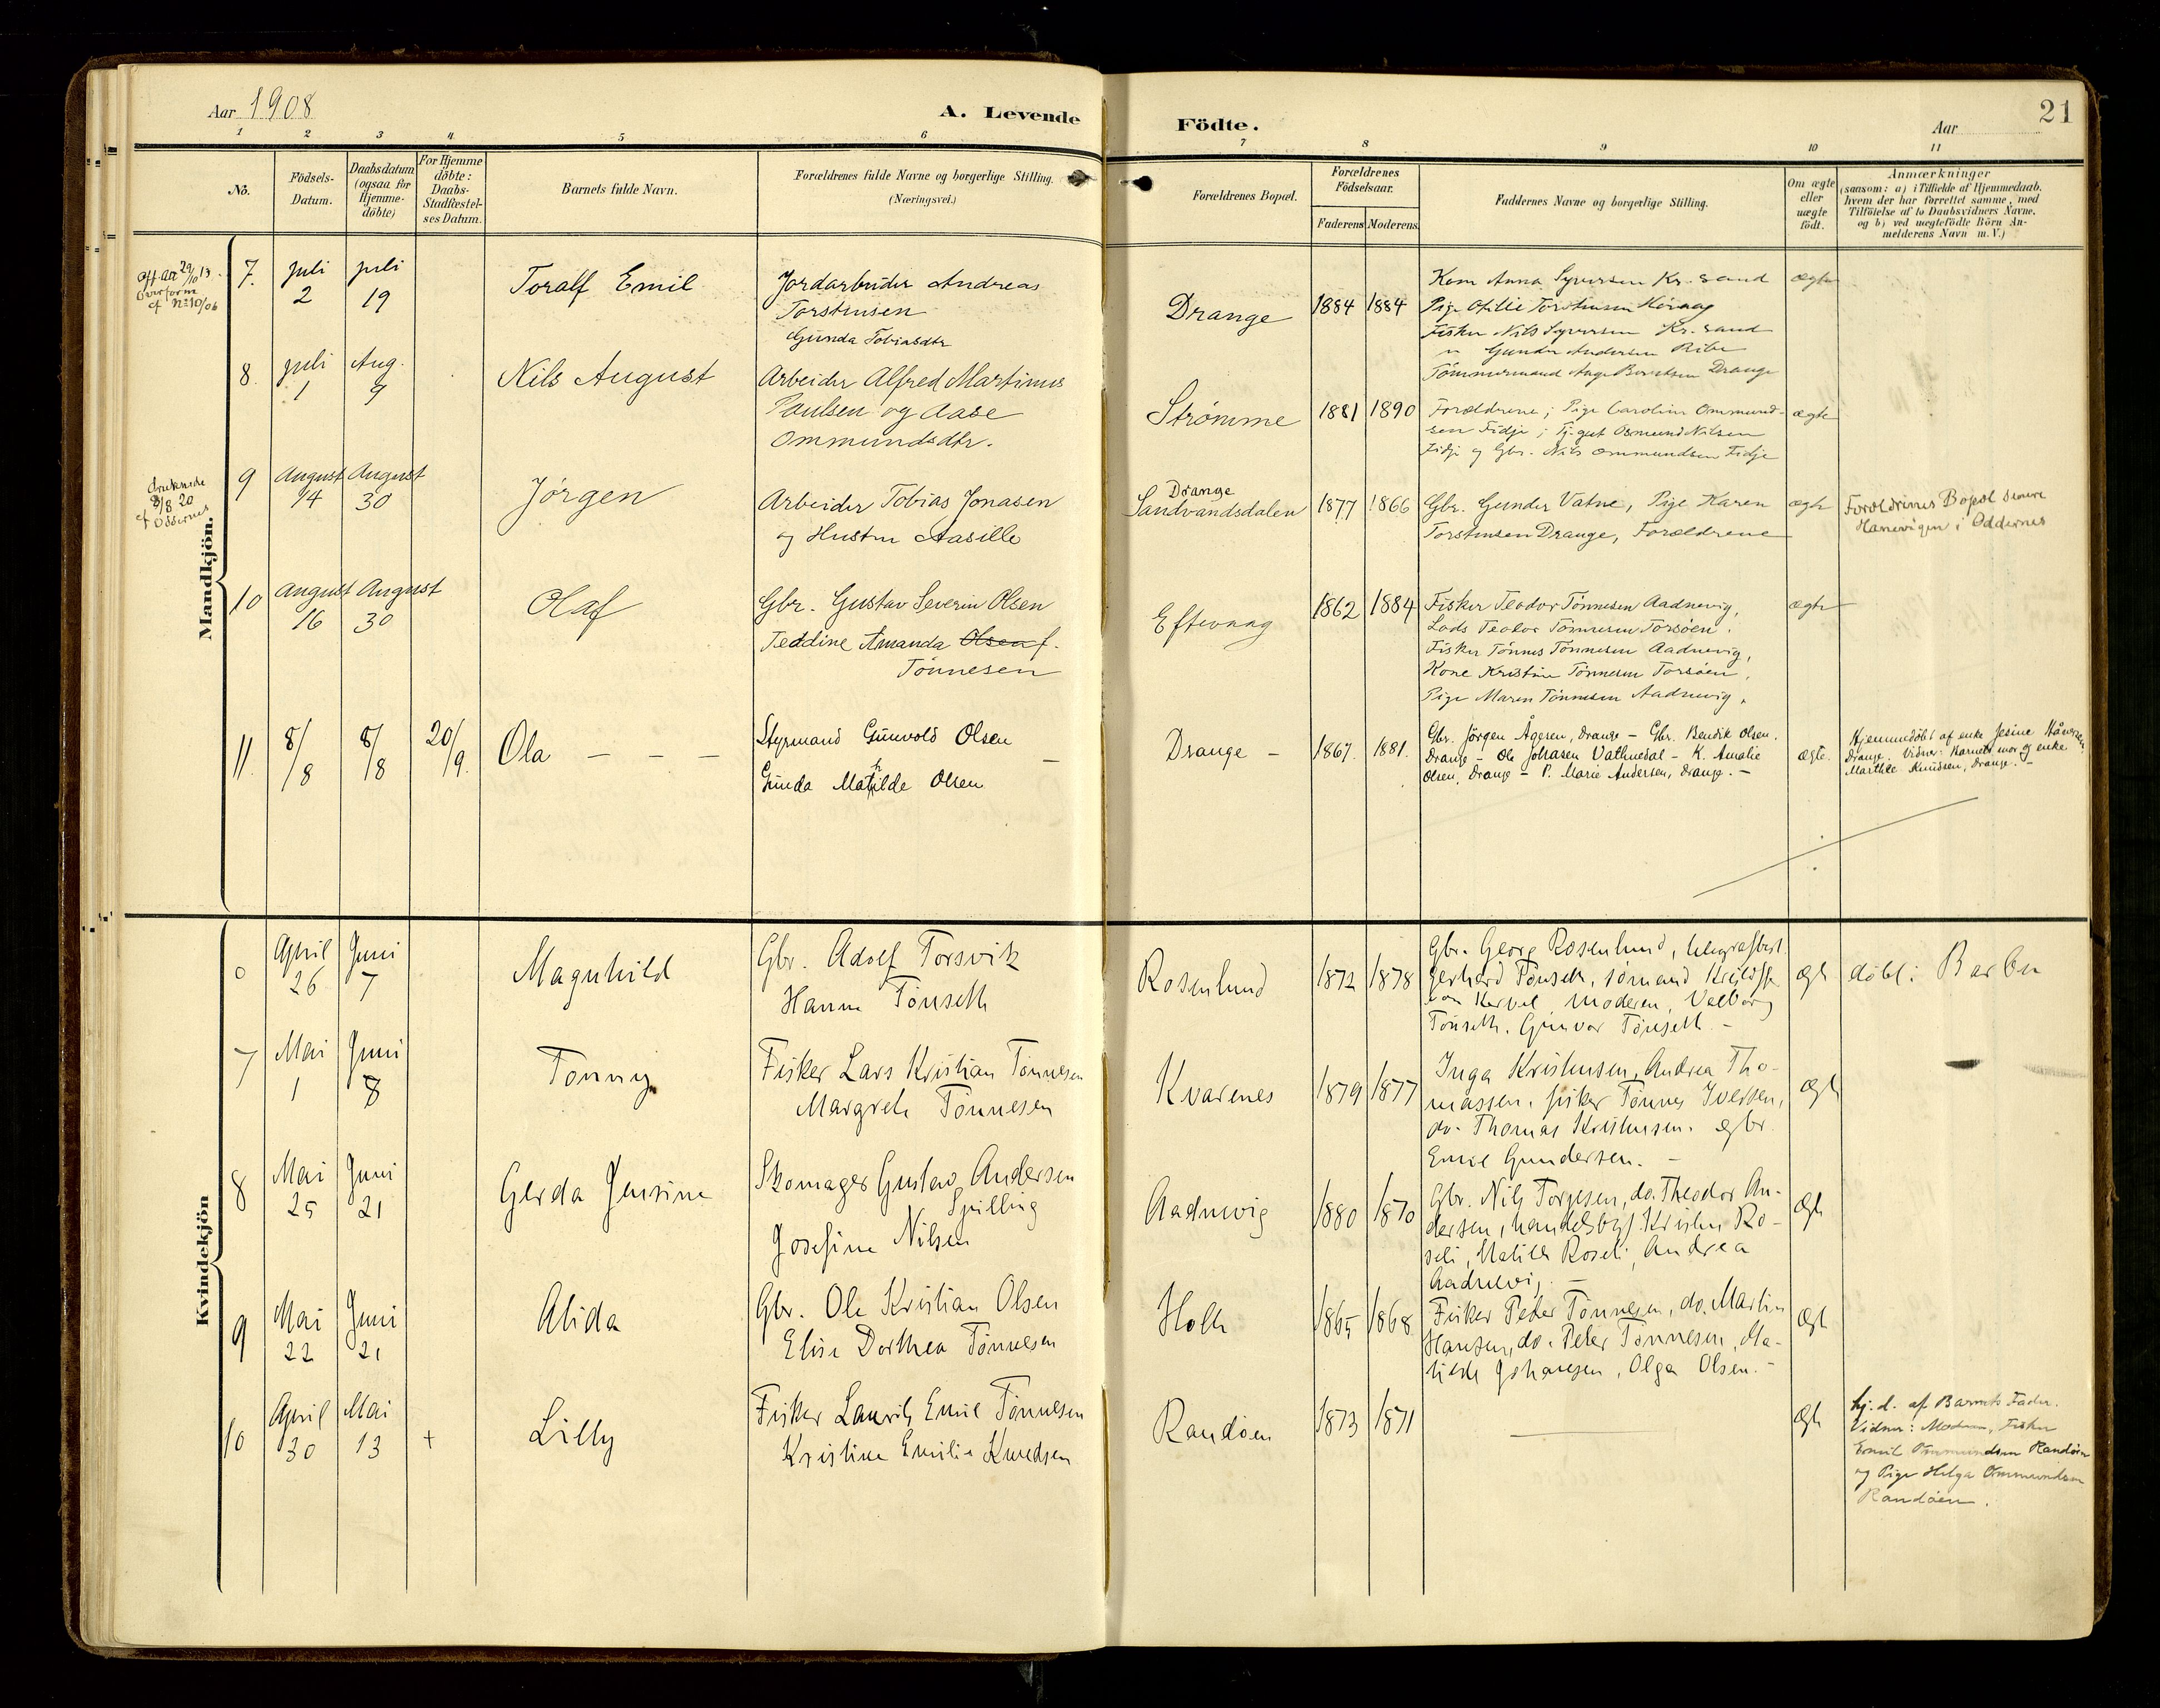 Aar 1908
A. Levende
Födte.
Aar
21
1 2 3 4 5 6 7 8 9 10 11
No.
Födsels-
Datum.
Daabsdatum
(ogsaa for
Hjemme-
döbte)
For Hjemme
döbte:
Daabs-
Stadfæstel-
ses Datum.
Barnets fulde Navn.
Forældrenes fulde Navne og borgerlige Stilling.
(Næringsvei.)
Forældrenes Bopæl.
Forældrenes
Födselsaar.
Faderens
Moderens
Faddernes Navne og borgerlige Stilling.
Om ægte
eller
uægte
födt.
Anmærkninger
(saasom: a) i Tilfælde af Hjemmedaab,
hvem der har forrettet samme, med
Tilföielse af to Daabsvidners Navne,
og b) ved uægtefödte Börn An-
melderens Navn m. V.)
Mandkjön.
7.
juli
2
juli
19
Toralf Emil
Jordarbeider Andreas
Torstensen
Gunda Tobiasdtr
Drange
1884
1884
Kone Anna Syversen Kr. sand
Pige Otilie Torstensen
Fisker Nils Syversen Kr. sand
" Gunder Andersen Ribe
Tömmermand Aage Berntsen Drange
ægte
8.
juli
1
Aug.
9
Nils August
Arbeider Alfred Martinus
Paulsen og Aase
Ommundsdtr.
Strömme
1881
1890
Forældrene; Pige Caroline Ommund-
sen Fidje; Tj.gut Osmund Nilsen
Fidje og Gbr. Nils Ommundsen Fidje
ægte
9
August
14
August
30
Jörgen
Arbeider Tobias Jonasen
og Hustru Aasille
Drange
Sandvandsdalen
1877
1866
Gbr. Gunder Vatne, Pige Karen
Torstensen Drange, Forældrene
ægte
Forældrenes Bopæl senere
Hanevigen i Oddernes
10
August
16
August
30
Olaf
Gbr. Gustav Severin Olsen
Teddine Amanda Olsen f.
Tönnesen
Eftevaag
1862
1884
Fisker Teodor Tönnesen Aadnevig,
Lods Teodor Tönnesen Torsöen,
Fisker Tönnes Tönnesen Aadnevig,
Kone Kristine Tönnesen Torsöen,
Pige Maren Tönnesen Aadnevig,
ægte
11.
8/8
8/8
20/9.
Ola – – –
Styrmand Gunvold Olsen
Gunda Mathilde Olsen –
Drange –
1867.
1881.
Gbr. Jörgen Ågesen, Drange – Gbr. Bendik Olsen,
Drange – Ole Johasen Vathnedal – K. Amalie
Olsen, Drange – P. Marie Andersen, Drange. –
ægte.
Hjemmedöbt af enke Jesine
Drange. Vidner: Barnets mor og enke
Marthe Knudsen, Drange. –
Kvindekjön
April
26
Juni
7
Magnhild
Gbr. Adolf Torsvik
Hanne Tönseth
Rosenlund
1872
1878
Gbr. Georg Rosenlund, telegrafbest.
Gerhard Tönseth, sömand Kristoffer
von Kervel, Moderen, Valborg
Tönseth, Gunvor Tönseth –
Ægte
döbt: Barbu
7
Mai
1
Juni
8
Tonny
Fisker Lars Kristian Tönnesen
Margrete Tönnesen
Kvarenes
1879
1877
Inga Kristensen, Andrea Tho-
massen, fisker Tönnes Iversen,
do. Thomas Kristensen. gbr.
Emil Gundersen. –
Ægte
8
Mai
25
Juni
21
Gerda Jensine
Skomager Gustav Andersen
Spilling
Josefine Nilsen
Aadnevig
1880
1870
Gbr. Nils Torjesen, do. Theodor An-
dersen, handelsbetj. Kristen Ro-
seli, Matilde Roseli, Andrea
Aadnevig. –
Ægte
9
Mai
22
Juni
21
Alida
Gbr. Ole Kristian Olsen
Elise Dorthea Tönnesen
Holte
1865
1868
Fisker Peter Tönnesen, do. Martin
Hansen, do. Peter Tönnesen, Ma-
tilde Johansen, Olga Olsen. –
Ægte
10
April
30
Mai
13
+
Lilly
Fisker Laurits Emil Tönnesen
Kristine Emilie Knudsen
Randöen
1873
1871
Ægte
hj.d. af Barnets Fader.
Vidner: Moderen, Fisker
Emil Ommundsen Randöen
og Pige Helga Ommundsen
Randöen.